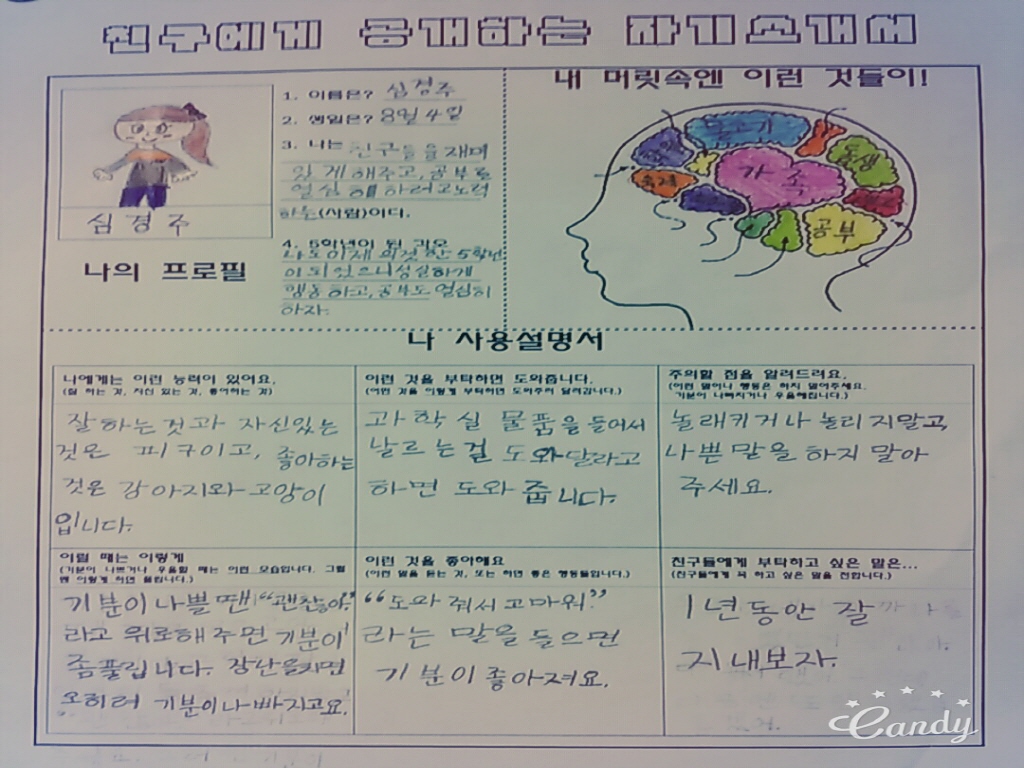 친구에게 공개하는 자기소개서
1. 이름은? 심경주
2. 생일은? 8월 4일
3. 나는 친구들을 재미
있게 해주고, 공부도
열심히 하려고 노력
하는 (사람)이다.
4. 5학년이 된 각오
나도 이제 의젓한 5학년
이 되었으니 성실하게
행동하고, 공부도 열심히
하자.
심경주
나의 프로필
내 머릿속엔 이런 것들이!
물고기
동생
가족
공부
나 사용설명서
나에게는 이런 능력이 있어요.
(잘 하는 것, 자신 있는 것, 좋아하는 것)
잘하는것과 자신있는
것은 피구이고, 좋아하는
것은 강아지와 고양이
입니다.
이런 것을 부탁하면 도와줍니다.
(어떤 것을 이렇게 부탁하면 도와주러 달려갑니다.)
과학실 물품을 들어서
날르는걸 도와달라고
하면 도와 줍니다.
주의할 점을 알려드려요.
(이런 말이나 행동은 하지 말아주세요.
기분이 나빠지거나 우울해집니다.)
놀래키거나 놀리지말고,
나쁜말을 하지 말아
주세요.
이럴 때는 이렇게
(기분이 나쁘거나 우울할 때는 이런 모습입니다. 그럴
땐 이렇게 하면 풀립니다.)
기분이 나쁠땐 "괜찮아"
라고 위로해주면 기분이
좀풀립니다. 장난을치면
오히려 기분이 나빠지고요.
이런 것을 좋아해요
(이런 말을 듣는 것, 또는 하면 좋은 행동들입니다.)
"도와 줘서 고마워"
라는 말을 들으면
기분이 좋아져요.
친구들에게 부탁하고 싶은 말은...
(친구들에게 꼭 하고 싶은 말을 전합니다.)
1년동안 잘
지내보자.
Candy